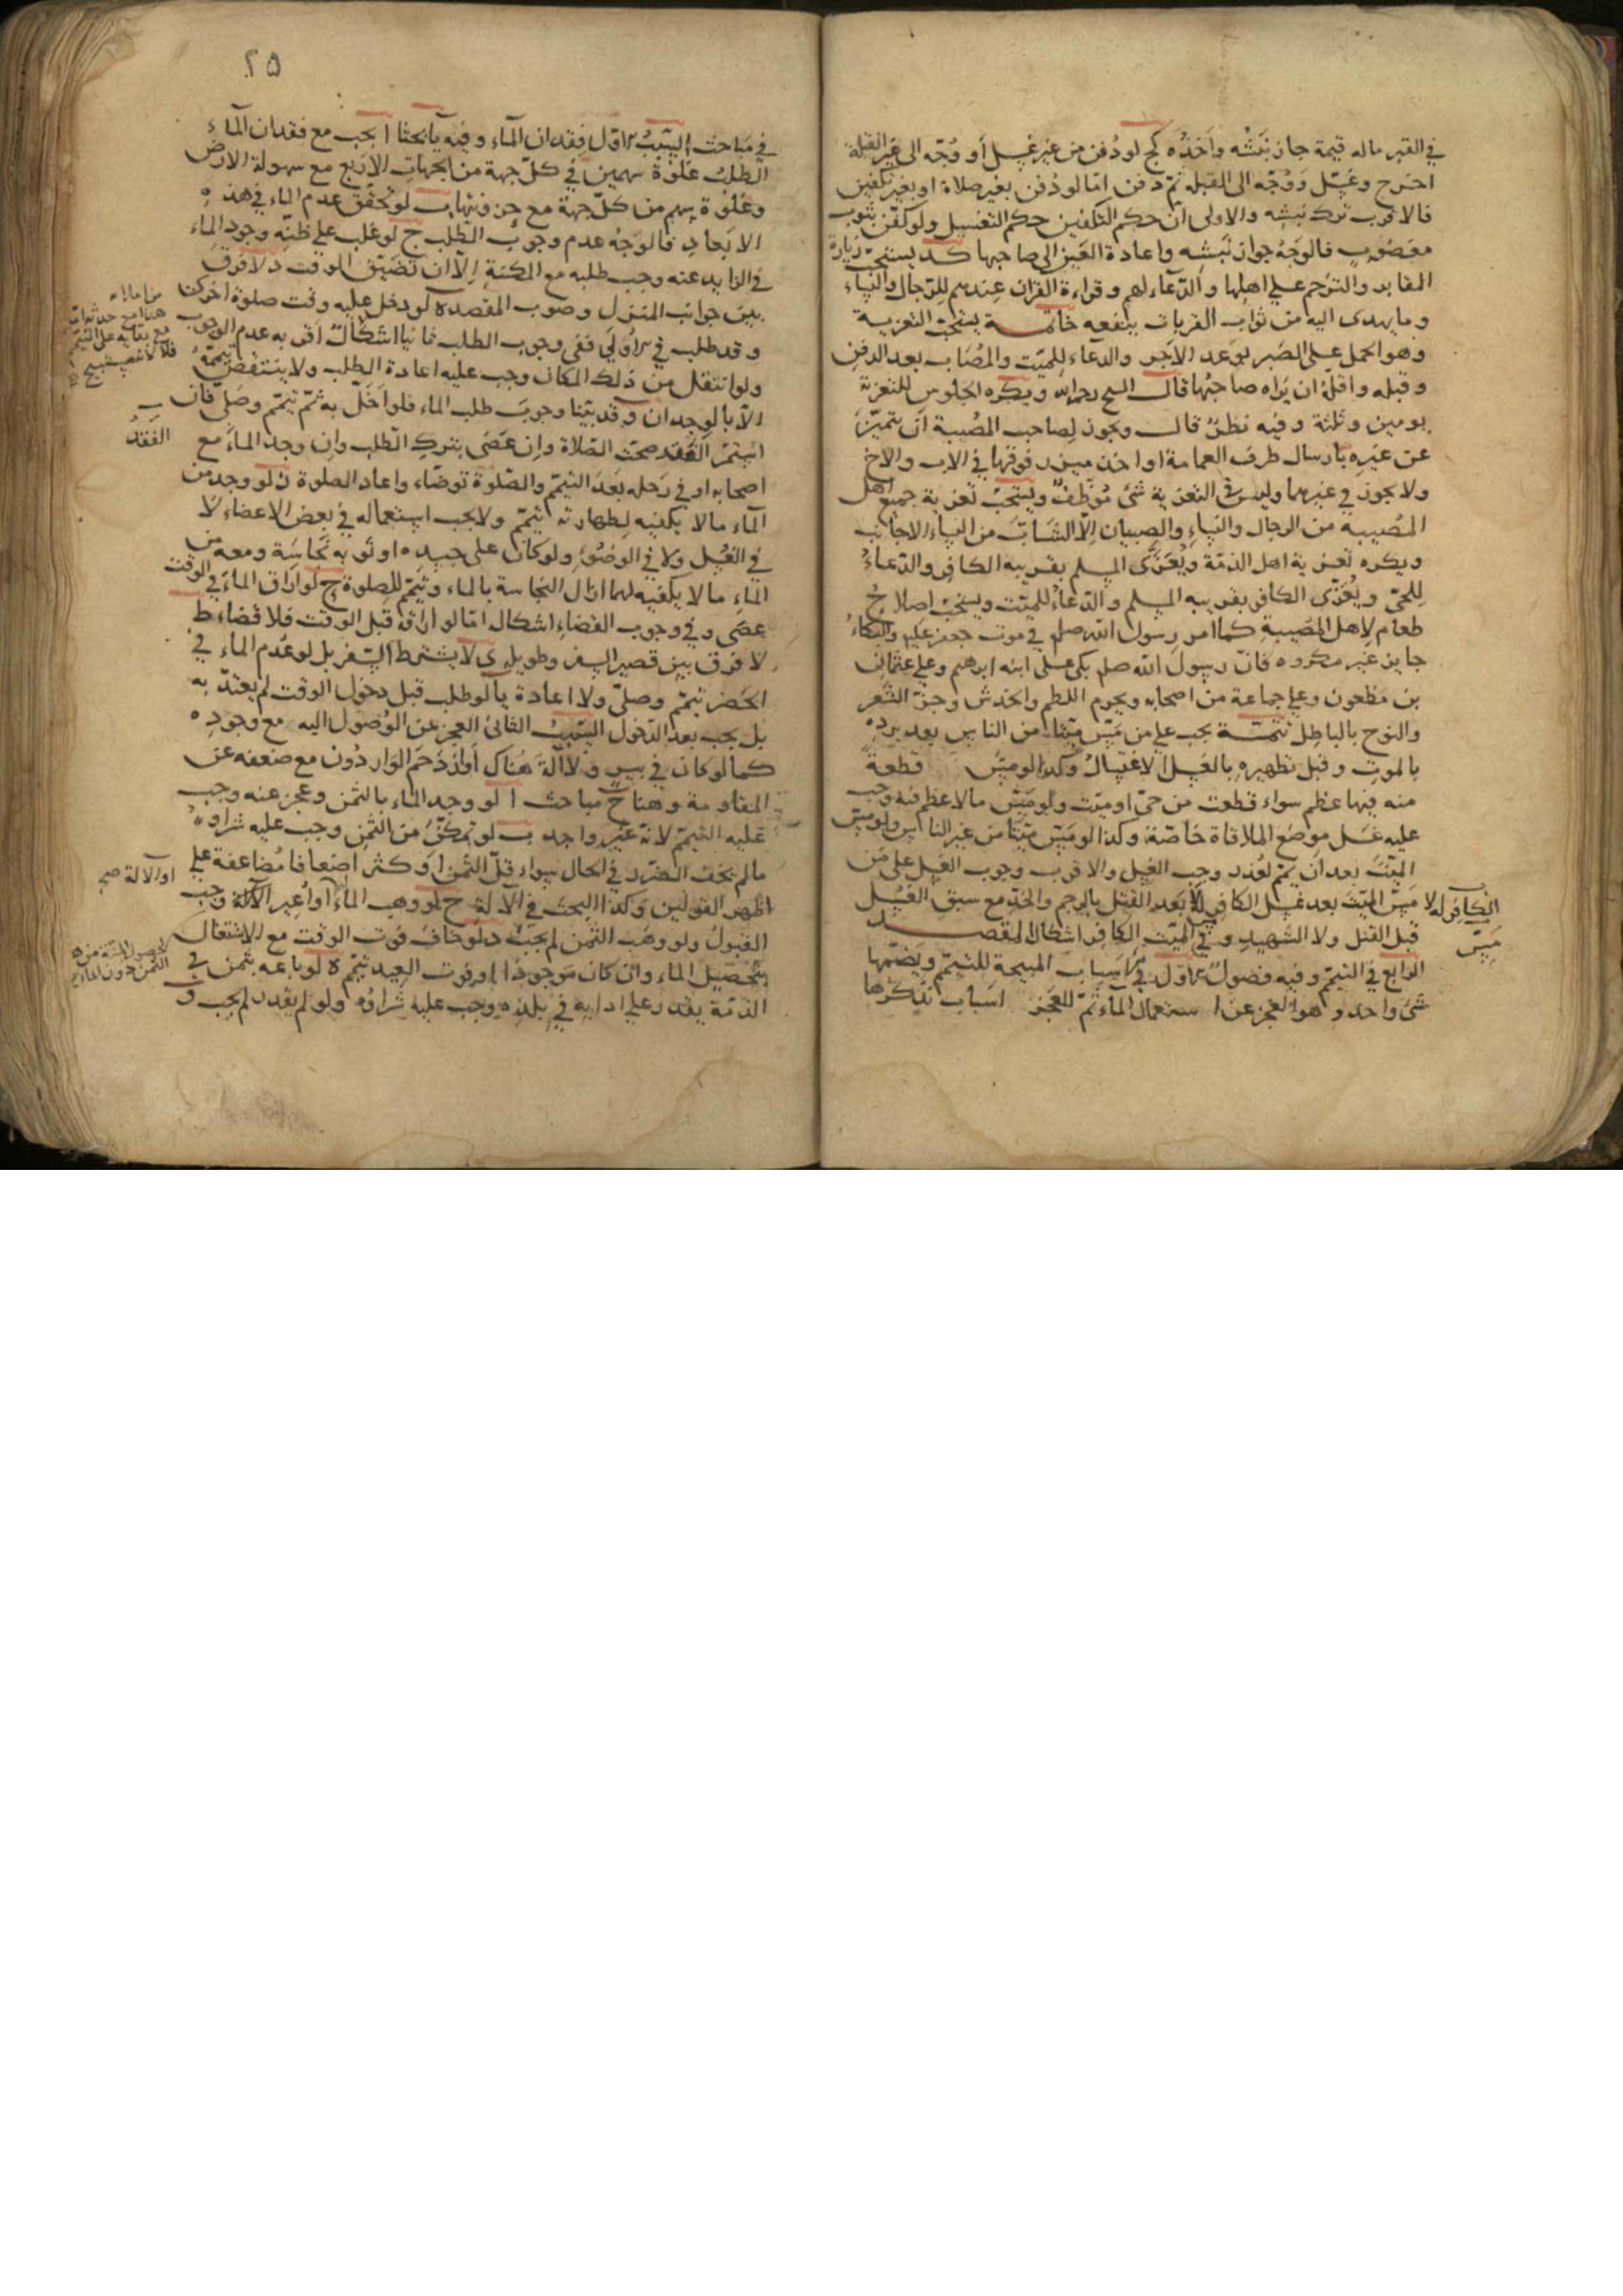 في القبر ماله قيمة جاز نبشه واخذه كج لو دفن من غير غسل أو وُجّه الى غير القبلة
اخرج وغسّل ووُجّه الى القبلة ثمّ دفن امّا لو دُفن بغير صلاة او بغير تكفين
فالاقرب ترك نبشه والاولى انّ حكم التكفين حكم التغسيل ولو كفّن بثوب
مغصُوبٍ فالوَجهُ جواز نَبشه واعادة العَين الى صاحبها كد يستحبّ زيارة
المقابر والترحم على اهلها والدّعاء لهم وقراءة القران عندهم للرّجال والنساء
وما يهدى اليه من ثواب القربات ينفعه خاتمة يستحبّ التعزية
وهو الحمل على الصّبر بوَعد الاَجر والدعاء للميّت والمُصاب بعد الدفن
وقبله واقلّهُ ان يَراه صاحبُها قال الشيخ رحمه الله ويكره الجلوس للتعزية
يومين وثلثة وفيه نظرٌ قال ويجوز لصاحب المُصيبة ان يتميّزَ
عن غيره بارسال طرف العمامة او اخذ ميزر فوقها في الاب والاخ
ولا يجوز في غيرهما وليس في التعزية شئ مُوَظّفٌ ويستحبّ تعزية جميع اهل
المُصيبة من الرجال والنساء والصبيان الّا الشّابّة من النساء الاجانب
ويكره تعزية اهل الذمّة ويُعَزَّى المسلم بقريبه الكافر والدّعاءُ
للحىّ ويُعَزّى الكافر بقريبه المسلم والدّعاءُ للميّت ويستحبّ اصلاحُ
طعام لاهل المصيبة كما امر رسول الله صلم في موت جعفر عليه والبكاءُ
جايز غير مكروه فانّ رسول الله صلم بكى على ابنه ابرهيم وعلى عثمان
بن مظعون وعلى جماعة من اصحابه ويحرم اللطم والخدش وجزّ الشّعر
والنوح بالباطل تتمّة يجب على من مَسّ ميّتا من الناس بعد برده
بالموت وقبل تطهيره بالغسل الاغتسالُ وكذا لو مسّ قطعةً
منه فيها عظم سواء قطعت من حىّ او ميّت ولو مَسّ مالا عظم فيه وجب
عليه غسل موضع الملاقاة خاصّة وكذا لو مَسّ ميّتا من غير الناس ولو مسّ
الميّتَ بعد ان يمّم لعُذر وجب الغسل والاقرب وجوب الغسل على من
مَسّ الميّت بعد غسل الكافر له لا بَعد القتل بالرجم والحَدّ مع سبق الغسل
الكافر له لا
مَسّ
قبل القتل ولا الشهيد وفي الميّت الكافر اشكال المقصد
الرابع في التيمّم وفيه فصولٌ الاول في الاسباب المبيحة للتيمّم ويَضمّها
شئ واحد وهو العجز عن استعمال الماء ثمّ للعجز اسباب نذكرها
٢٥
في مَباحث السّببُ الاوّل فقدان الماء وفيه يا بحثا ا يجب مع فقدان الماء
الطلبُ غلوة سهمين في كلّ جهة من الجهات الاربع مع سهولة الارض
وغلوة سهم من كلّ جهة مع حزونتها ب لو تحقّق عدم الماء في هذه
الابعاد فالوَجهُ عدم وجوب الطّلب ج لو غلب على ظنّه وجود الماء
في الزايد عنه وجب طلبه مع المكنة الّا ان تضيّق الوقت د لا فرق
بين جوانب المنزل وصوب المقصد ه لو دخل عليه وقت صلوة اخرى
وقد طلب في الاولى ففي وجوب الطلب ثانيا اشكالٌ اقربه عدم الوجوب
هذا مع
مع بقائه على التيمم
ولو انتقل من ذلك المكان وجب عليه اعادة الطلب ولا ينتقض تيمّمهُ
الّا بالوجدان و قد بيّنا وجوبَ طلب الماء فلو اَخَلّ به ثمّ تيمّم وصَلى فان
استمرّ الفَقد صحّت الصّلاة وان عَصَى بترك الطلب وان وجد الماءَ مع
الفَقدُ
اصحابه او في رَحله بَعدَ التيمّم والصّلوة توضّاء واعاد الصلوة ز لو وجد من
الماء مالا يكفيه لطهارته تيمّم ولا يجب استعماله في بعض الاعضاء لا
في الغُسل ولا في الوضُوءِ ولو كان على جسده او ثوبه نَجاسَة ومعه من
الماءِ مالا يكفيه لهما ازال النجاسة بالماء وتيمّم للصلوة ح لو اراق الماءَ في الوقت
عَصَى وفي وجوب القضاءِ اشكال امّا لو اراقه قبل الوقت فلا قضاء ط
لا فرق بين قصير السفر وطويله ى لا يشترط السّفر بل لو عُدم الماء في
الحَضر تيمّم وصلّى ولا اعادة يا لو طلب قبل دخول الوقت لم يعتدّ به
بل يجب بعد الدّخول السّببُ الثاني العجز عن الوُصول اليه مع وجوده
كما لو كان في بير ولا الة هُناك اَو ازدَحَم الواردُون مع ضعفه عن
المقاومة وهنا ح مباحث ا لو وجد الماء بالثمن وعجز عنه وجب
عليه التيمّم لانّه غيرُ واجد ب لو تمكّن من الثمن وجب عليه شراوه
مالم يَخف الضّرر في الحال سواء قلّ الثمن او كثر اضعافا مُضاعَفة على
او الالة صح
اظهر القولين وكذا البحث في الآلة ج لو وهب الماءُ او اُعير الآلة وجب
القبولُ ولو وُهب الثمن لم يَجب د لو خاف فوت الوقت مع الاشتغال
بتحصيل الماء وان كان مَوجودًا او فوت العيد تيمّم ه لو باعه بثمن في
الذمّة يقدر على ادايه في بلده وجب عليه شراؤه ولو لم يقدر لم يجب و